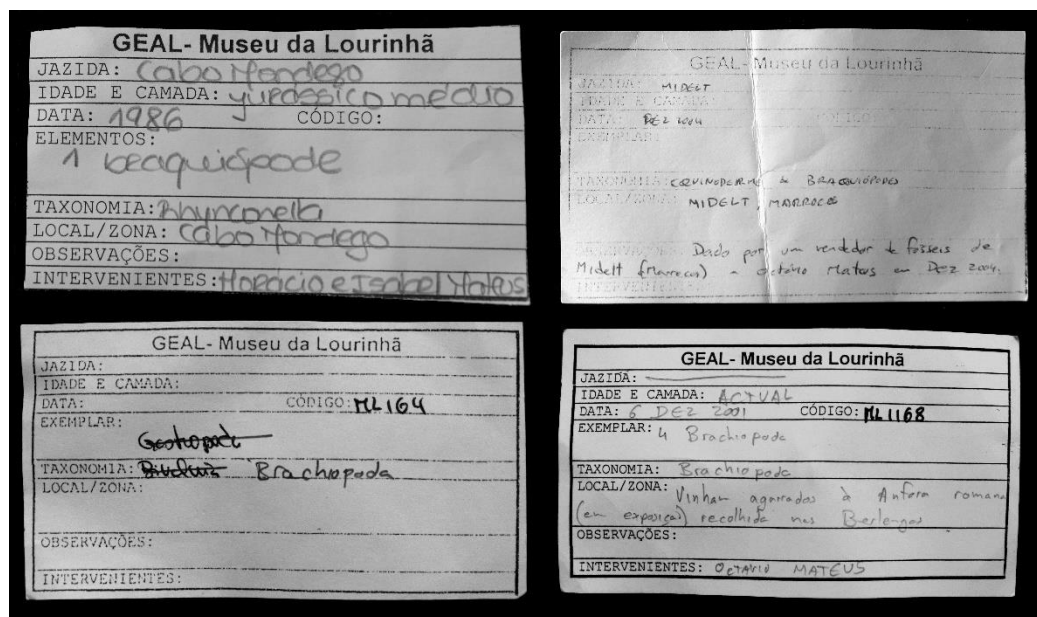 GEAL- Museu da Lourinhã
JAZIDA: Cabo Mondego
IDADE E CAMADA: yurássico médio
DATA: 1986 CÓDIGO:
ELEMENTOS:
1 braquiópode
TAXONOMIA: Rhynconella
LOCAL/ZONA: Cabo Mondego
OBSERVAÇÕES:
INTERVENIENTES: Horácio e Isabel Mateus
GEAL- Museu da Lourinhã
JAZIDA: MIDELT
IDADE E CAMADA:
DATA: DEZ 2004 CÓDIGO:
EXEMPLAR:
TAXONOMIA: EQUINODERME & BRAQUIÓPODES
LOCAL/ZONA: MIDELT, MARROCOS
OBSERVAÇÕES: Dado por um vendedor de fósseis de
Midelt (Marrocos) a Octávio Mateus em Dez 2004.
INTERVENIENTES:
GEAL- Museu da Lourinhã
JAZIDA:
IDADE E CAMADA:
DATA: CÓDIGO: ML164
EXEMPLAR:
Gastropode
TAXONOMIA: Bivalvia Brachiopoda
LOCAL/ZONA:
OBSERVAÇÕES:
INTERVENIENTES:
GEAL- Museu da Lourinhã
JAZIDA:
IDADE E CAMADA: ACTUAL
DATA: 6 DEZ 2001 CÓDIGO: ML1168
EXEMPLAR: 4 Brachiopoda
TAXONOMIA: Brachiopoda
LOCAL/ZONA: Vinham agarrados à Anfora romana
(em exposição) recolhida nas Berlengas
OBSERVAÇÕES:
INTERVENIENTES: OCTÁVIO MATEUS